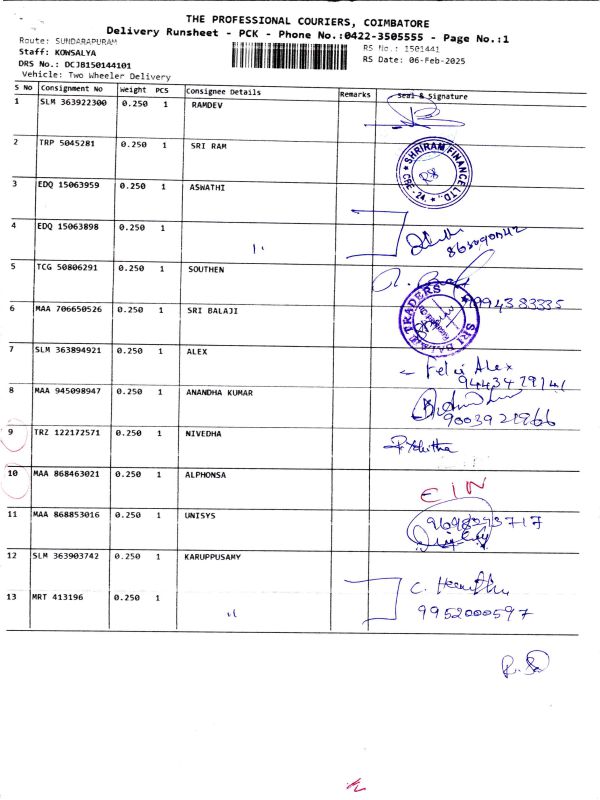 THE PROFESSIONAL COURIERS, COIMBATORE
Delivery Runsheet - PCK - Phone No.:0422-3505555 - Page No.:1
Route: SUNDARAPURAM
RS No.: 1501441
Staff: KOWSALYA
RS Date: 06-Feb-2025
DRS No.: DCJB150144101
Vehicle: Two Wheeler Delivery
S No Consignment No Weight PCS Consignee Details Remarks Seal & Signature
1 SLM 363922300 0.250 1 RAMDEV
2 TRP 5045281 0.250 1 SRI RAM
SHRIRAM FINANCE LTD. CBE - 24.
3 EDQ 15063959 0.250 1 ASWATHI
4 EDQ 15063898 0.250 1 "
5 TCG 50806291 0.250 1 SOUTHEN
9994383335
6 MAA 706650526 0.250 1 SRI BALAJI
SRI BALAJI TRADERS
7 SLM 363894921 0.250 1 ALEX
Felix Alex
9443479141
8 MAA 945098947 0.250 1 ANANDHA KUMAR
9003921966
9 TRZ 122172571 0.250 1 NIVEDHA
10 MAA 868463021 0.250 1 ALPHONSA
11 MAA 868853016 0.250 1 UNISYS
9698273717
12 SLM 363903742 0.250 1 KARUPPUSAMY
13 MRT 413196 0.250 1 "
9952000597